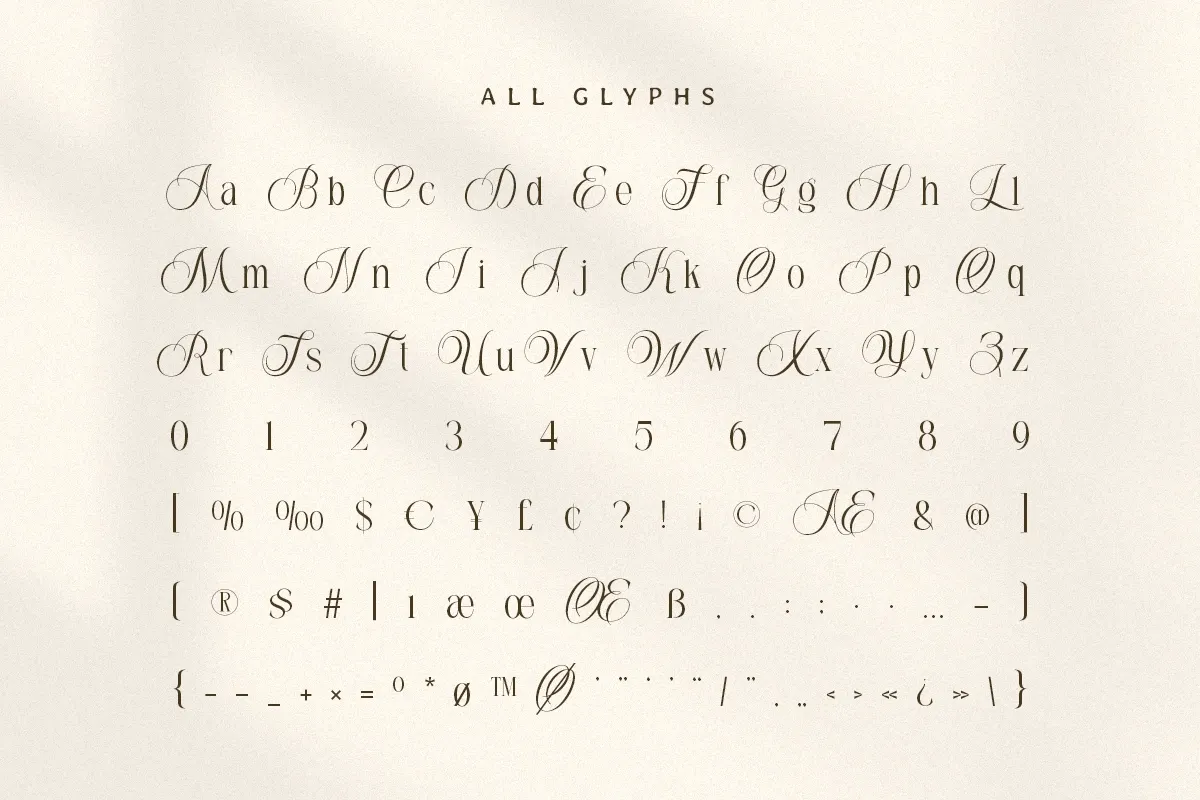 ALL GLYPHS
Aa Bb Cc Dd Ee Ff Gg Hh Ll
Mm Nn Ii Jj Kk Oo Pp Qq
Rr Ss Tt Uu Vv Ww Xx Yy Zz
0 1 2 3 4 5 6 7 8 9
[ % ‰ $ € ¥ £ ¢ ? ! ¡ © Æ & @ ]
( ® § # | ı æ œ Œ ß . . : : · · … – )
{ – – _ + × = º * ø ™ Ø ˙ ¨ ˙ ˙ ¨ / ¨ . „ < > « ¿ » \ }